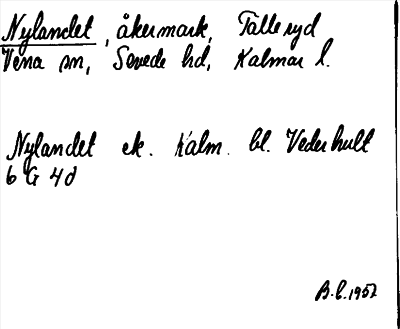 Nylandet, åkermark, Talleryd
Vena sn, Sevede hd, Kalmar l.
Nylandet ek. Kalm. bl. Vederhult
6 G 4d
B.L. 1957